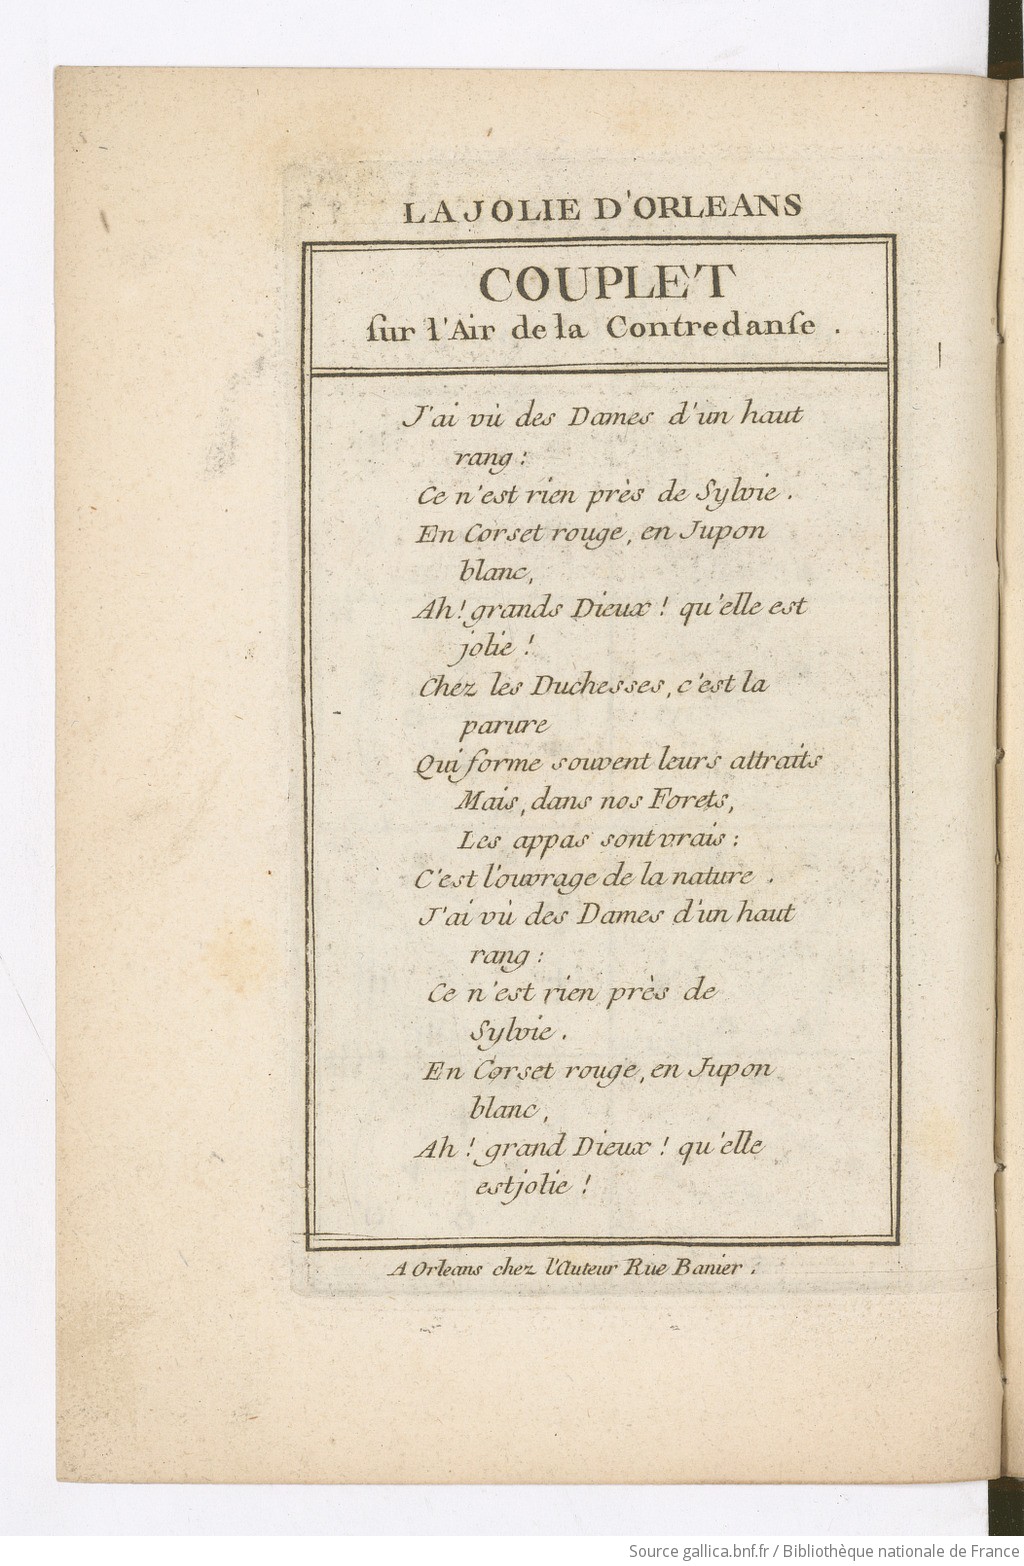 LA JOLIE D'ORLEANS
COUPLET
ſur l'Air de la Contredanſe .
J'ai vû des Dames d'un haut
rang :
Ce n'est rien près de Sylvie .
En Corset rouge, en Jupon
blanc,
Ah! grands Dieux ! qu'elle est
jolie !
Chez les Duchesses, c'est la
parure
Qui forme souvent leurs attraits
Mais, dans nos Forets,
Les appas sont vrais :
C'est l'ouvrage de la nature .
J'ai vû des Dames d'un haut
rang :
Ce n'est rien près de
Sylvie .
En Corset rouge, en Jupon
blanc,
Ah ! grand Dieux ! qu'elle
est jolie !
A Orleans chez l'Auteur Rue Banier .
Source gallica.bnf.fr / Bibliothèque nationale de France